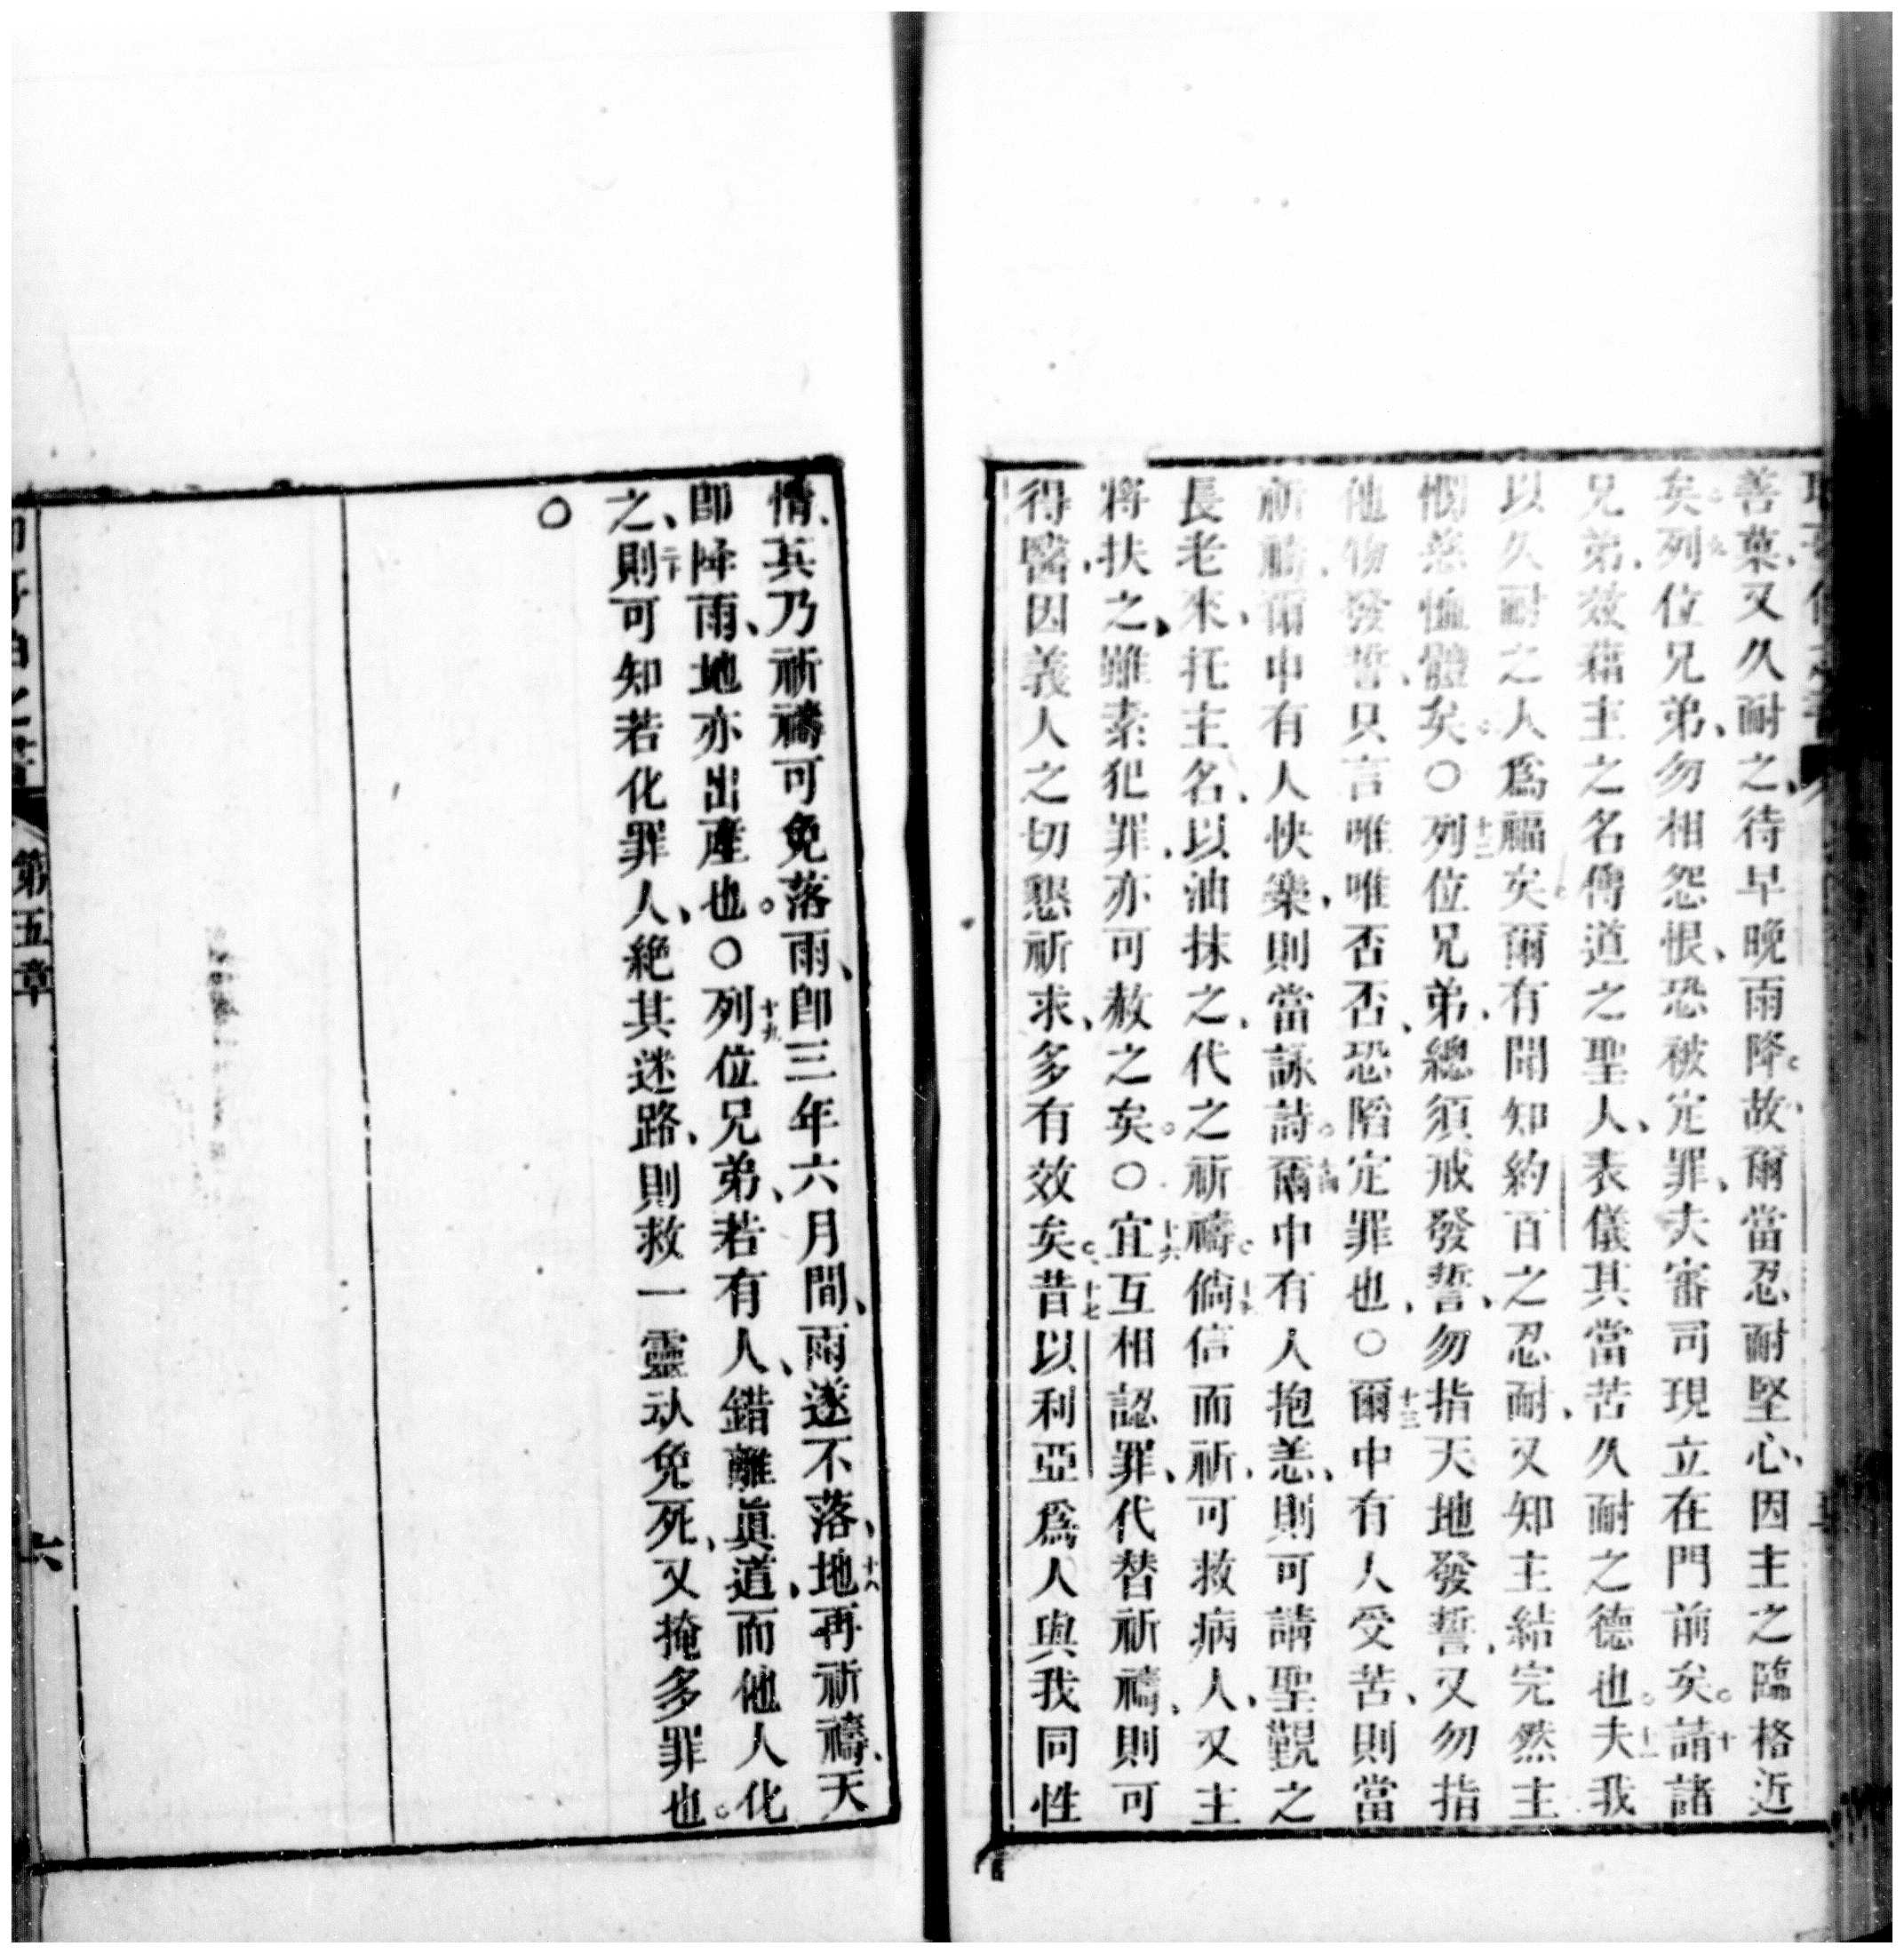 善菓、又久耐之、待早晚雨降。故、爾當忍耐堅心、因主之臨格近
矣。九列位兄弟、勿相怨恨、恐被定罪、夫審司現立在門前矣。十請諸
兄弟、效藉主之名傳道之聖人、表儀其當苦久耐之德也。十一夫我
以久耐之人爲福矣。爾有聞知約百之忍耐、又知主結完然主
憫慈恤體矣。○十二列位兄弟、總須戒發誓、勿指天地發誓、又勿指
他物發誓、只言唯唯否否、恐陷定罪也、○十三爾中有人受苦、則當
祈禱、爾中有人快樂、則當詠詩。十四爾中有人抱恙、則可請聖覡之
長老來、托主名、以油抹之、代之祈禱。十五倘信而祈、可救病人、又主
將扶之、雖素犯罪、亦可赦之矣。○十六宜互相認罪、代替祈禱、則可
得醫、因義人之切懇祈求、多有效矣。十七昔以利亞爲人與我同性
情、其乃祈禱可免落雨、即三年六月間、雨遂不落、地十八再祈禱、天
即降雨、地亦出產也。○十九列位兄弟、若有人、錯離眞道、而他人化
之、二十則可知若化罪人、絶其迷路、則救一靈䰟免死、又掩多罪也。
○
第五章
六